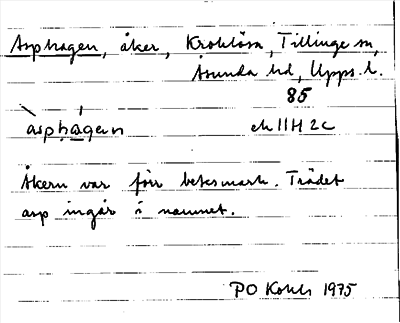 Asphagen, åker, Kroklösa, Tillinge sn,
Åsunda hd, Upps. l.
85
àsphágen ek 11H 2c
Åkern var förr betesmark. Trädet
asp ingår i namnet.
PO Kohls 1975